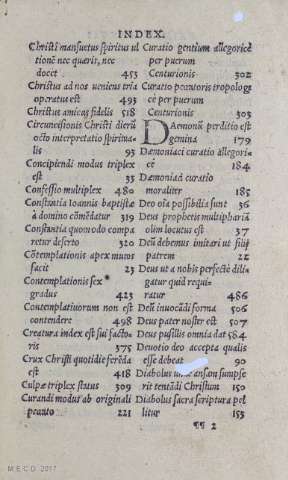 INDEX.
Christi mansuetus spiritus ul
tionẽ nec quærit, nec
docet 453
Christus ad nos ueniens tria
operatus est 493
Christus amicas fidelis 518
Circuncisionis Christi dierũ
octo interpretatio spiritua-
lis 93
Concipiendi modus triplex
est 35
Confessio multiplex 480
Constantia Ioannis baptistæ
à domino cõmẽdatur 319
Constantia quomodo compa
retur deserto 320
Cõtemplationis apex muros
facit 23
Contemplationis sex
gradus 423
Contemplatiuorum non est
contendere 498
Creatura index est sui facto-
ris 375
Crux Christi quotidie ferẽda
est 418
Culpæ triplex status 309
Curandi modus ab originali
peccato 221
Curatio gentium allegoricè
per puerum
Centurionis 302
Curatio peccatoris tropologi
cè per puerum
Centurionis 303
DAemonũ perditio est
gehenna 179
Dæmoniaci curatio allegori-
cè 184
Dæmoniaci curatio
moraliter 185
Deo oĩa possibilia sunt 36
Deus prophetis multiphariã
olim locutus est 37
Deũ debemus imitari ut filij
patrem 22
Deus ut a nobis perfectè dili-
gatur quid requi-
ratur 486
Deũ inuocãdi forma 506
Deus pater noster est 507
Deus pusillis omnia dat 584
Deuotio deo accepta qualis
esse debeat 90
Diabolus ansam sumpse
rit tentãdi Christum 150
Diabolus sacra scriptura pel
litur 153
¶¶ 2
M.E.C.D. 2017